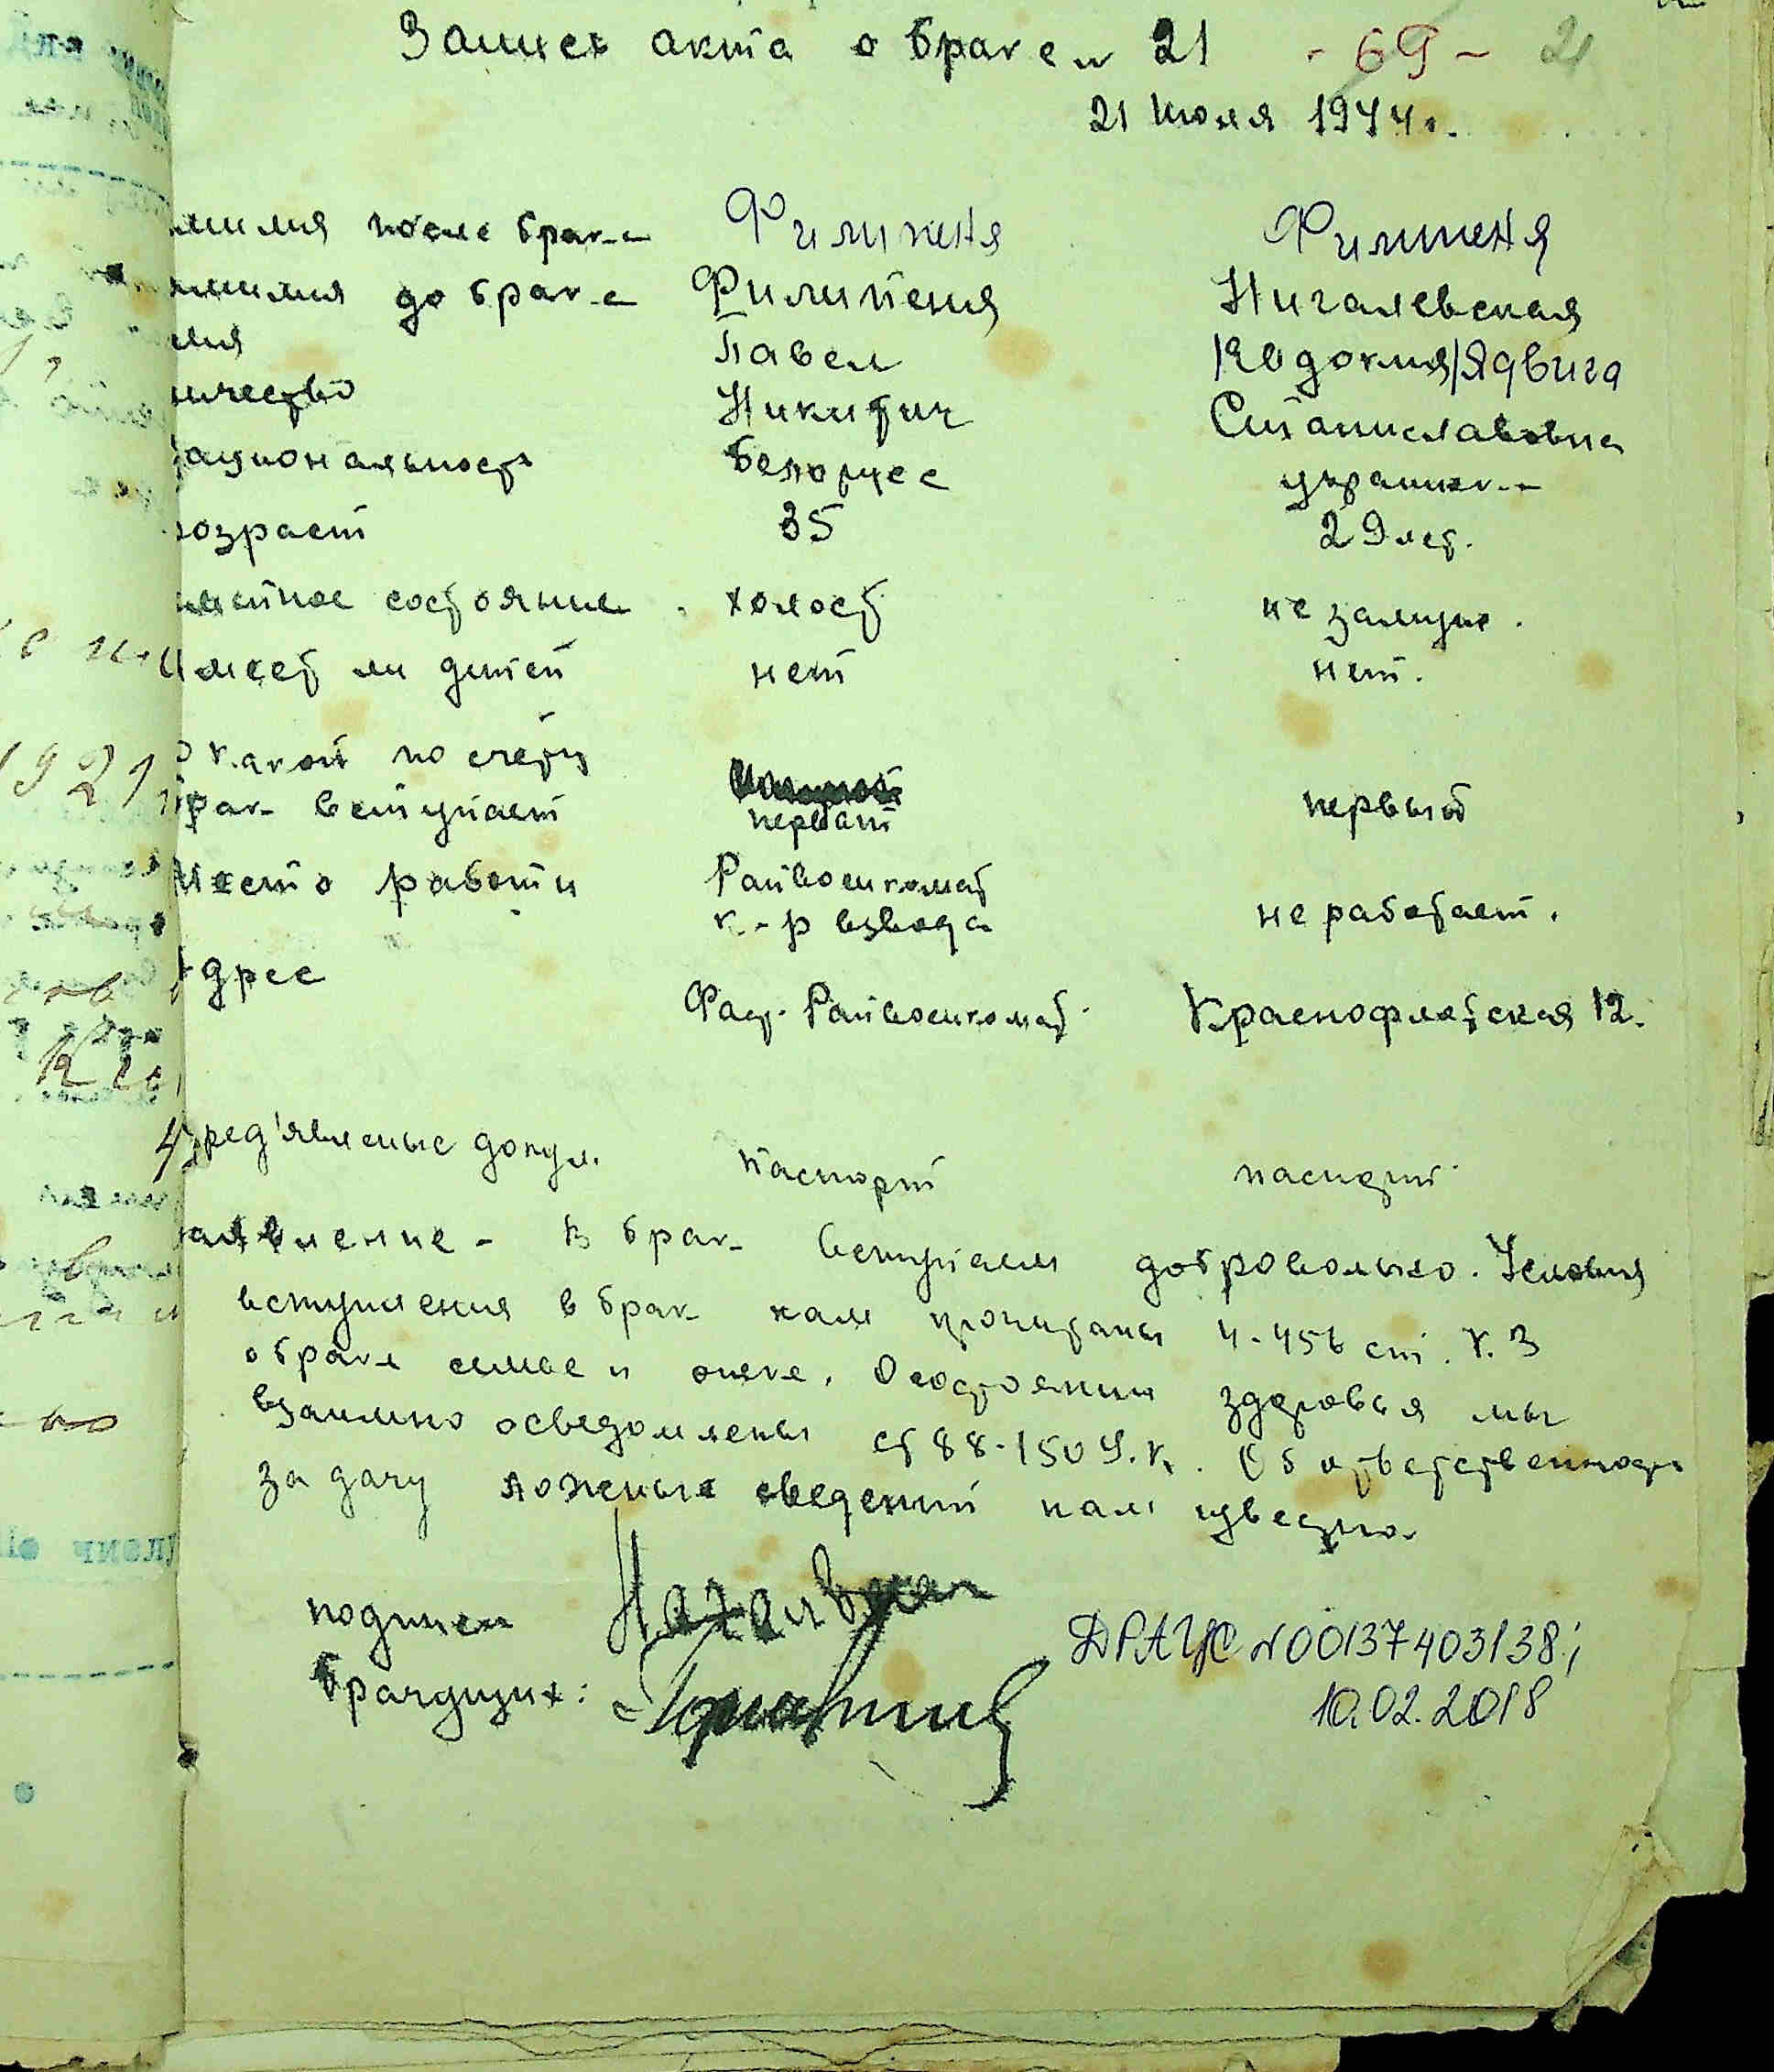 Запись акта о браке № 21 - 69 - 21
21 Июля 1944г.
милия после брака Филипеня Филипеня
амилия до брака Филипеня Нигалевская
мя Павел Евдокия/Ядвига
чество Никитич Станиславовна
ациональность белорусс украинка
возраст 35 29 лет.
мейное состояние холост не замужем.
Имеет ли детей нет нет.
какой по счету
брак вступает первый первый
Место работы Райвоенкомат
к-р взвода не работает.
Адрес
Фаст. Райвоенкомат Краснофлотская 12.
Пред'явленые докум. паспорт паспорт
аявление - В брак вступаем добровольно. Условия
вступления в брак нам прочитаны 4-456 ст. К.З
о браке семье и опеке. О состоянии здоровья мы
взаимно осведомлены ст 88-150 У.К. Об ответственности
за дачу ложных сведений нам известно
подписи
брачущих:
ДРАЦС N00137403138;
10.02.2018